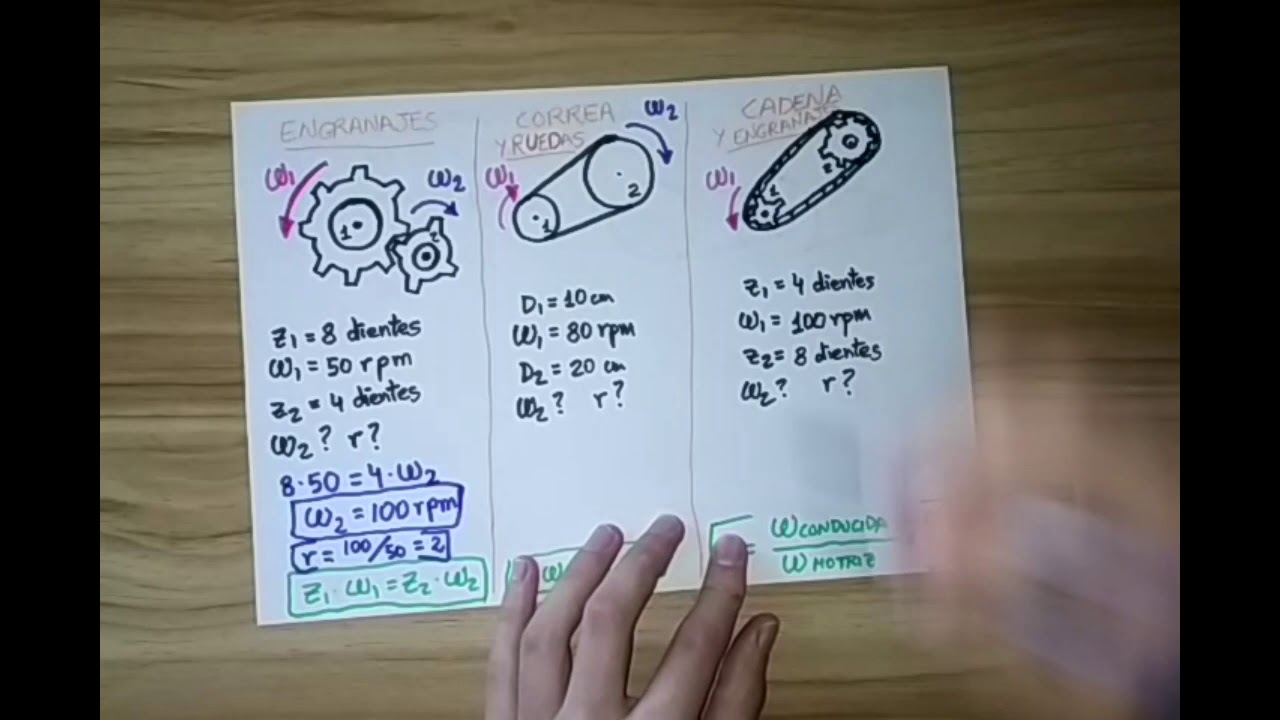 ENGRANAJES
ω1
ω2
1
2
Z1 = 8 dientes
ω1 = 50 rpm
Z2 = 4 dientes
ω2? r?
8·50 = 4·ω2
ω2 = 100 rpm
r = 100/50 = 2
Z1·ω1 = Z2·ω2
CORREA
Y RUEDAS
ω1
ω2
1
2
D1 = 10 cm
ω1 = 80 rpm
D2 = 20 cm
ω2? r?
CADENA
Y ENGRANAJE
ω1
1
2
Z1 = 4 dientes
ω1 = 100 rpm
Z2 = 8 dientes
ω2? r?
= ω CONDUCIDA
ω MOTRIZ